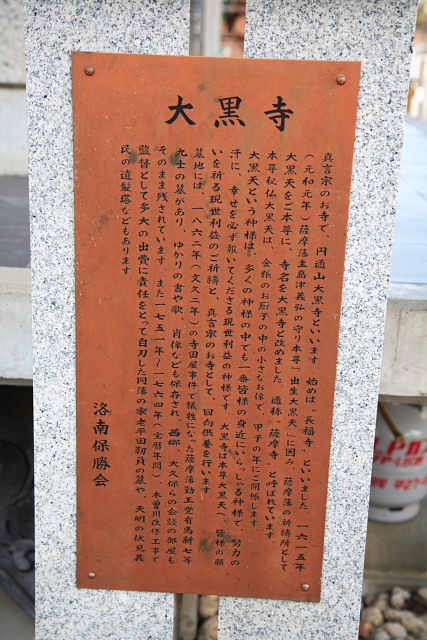 大黒寺
真言宗のお寺で、円通山大黒寺といいます。始めは“長福寺”といいました。一六一五年
（元和元年）薩摩藩主島津義弘の守り本尊「出生大黒天」に因み、薩摩藩の祈祷所として
大黒天をご本尊に、寺名を大黒寺と改めました。通称“薩摩寺”と呼ばれています。
本尊秘仏大黒天は、金張のお厨子の中の小さなお像で、甲子の年にご開帳します。
大黒天という神様は、多くの神様の中でも一番皆様の身近にいらっしゃる神様で、努力の
汗に、幸せを必ず報いてくださる現世利益の神様です。大黒寺は本尊大黒天へ、皆様の願
いを祈る現世利益のご祈祷と、真言宗のお寺として、回向供養を行います。
墓地には、一八六二年（文久二年）の寺田屋事件で犠牲になった薩摩藩勤王党有馬新七等
九士の墓があり、ゆかりの書や歌、肖像なども保存され、西郷、大久保らの会談の部屋も
そのまま残されています。また一七五一年〜一七六四年（宝暦年間）、木曽川改修工事で
監督として多大の出費に責任をとって自刃した同藩の家老平田靭負の墓や、天明の伏見義
民の遺髪塔などもあります。
洛南保勝会